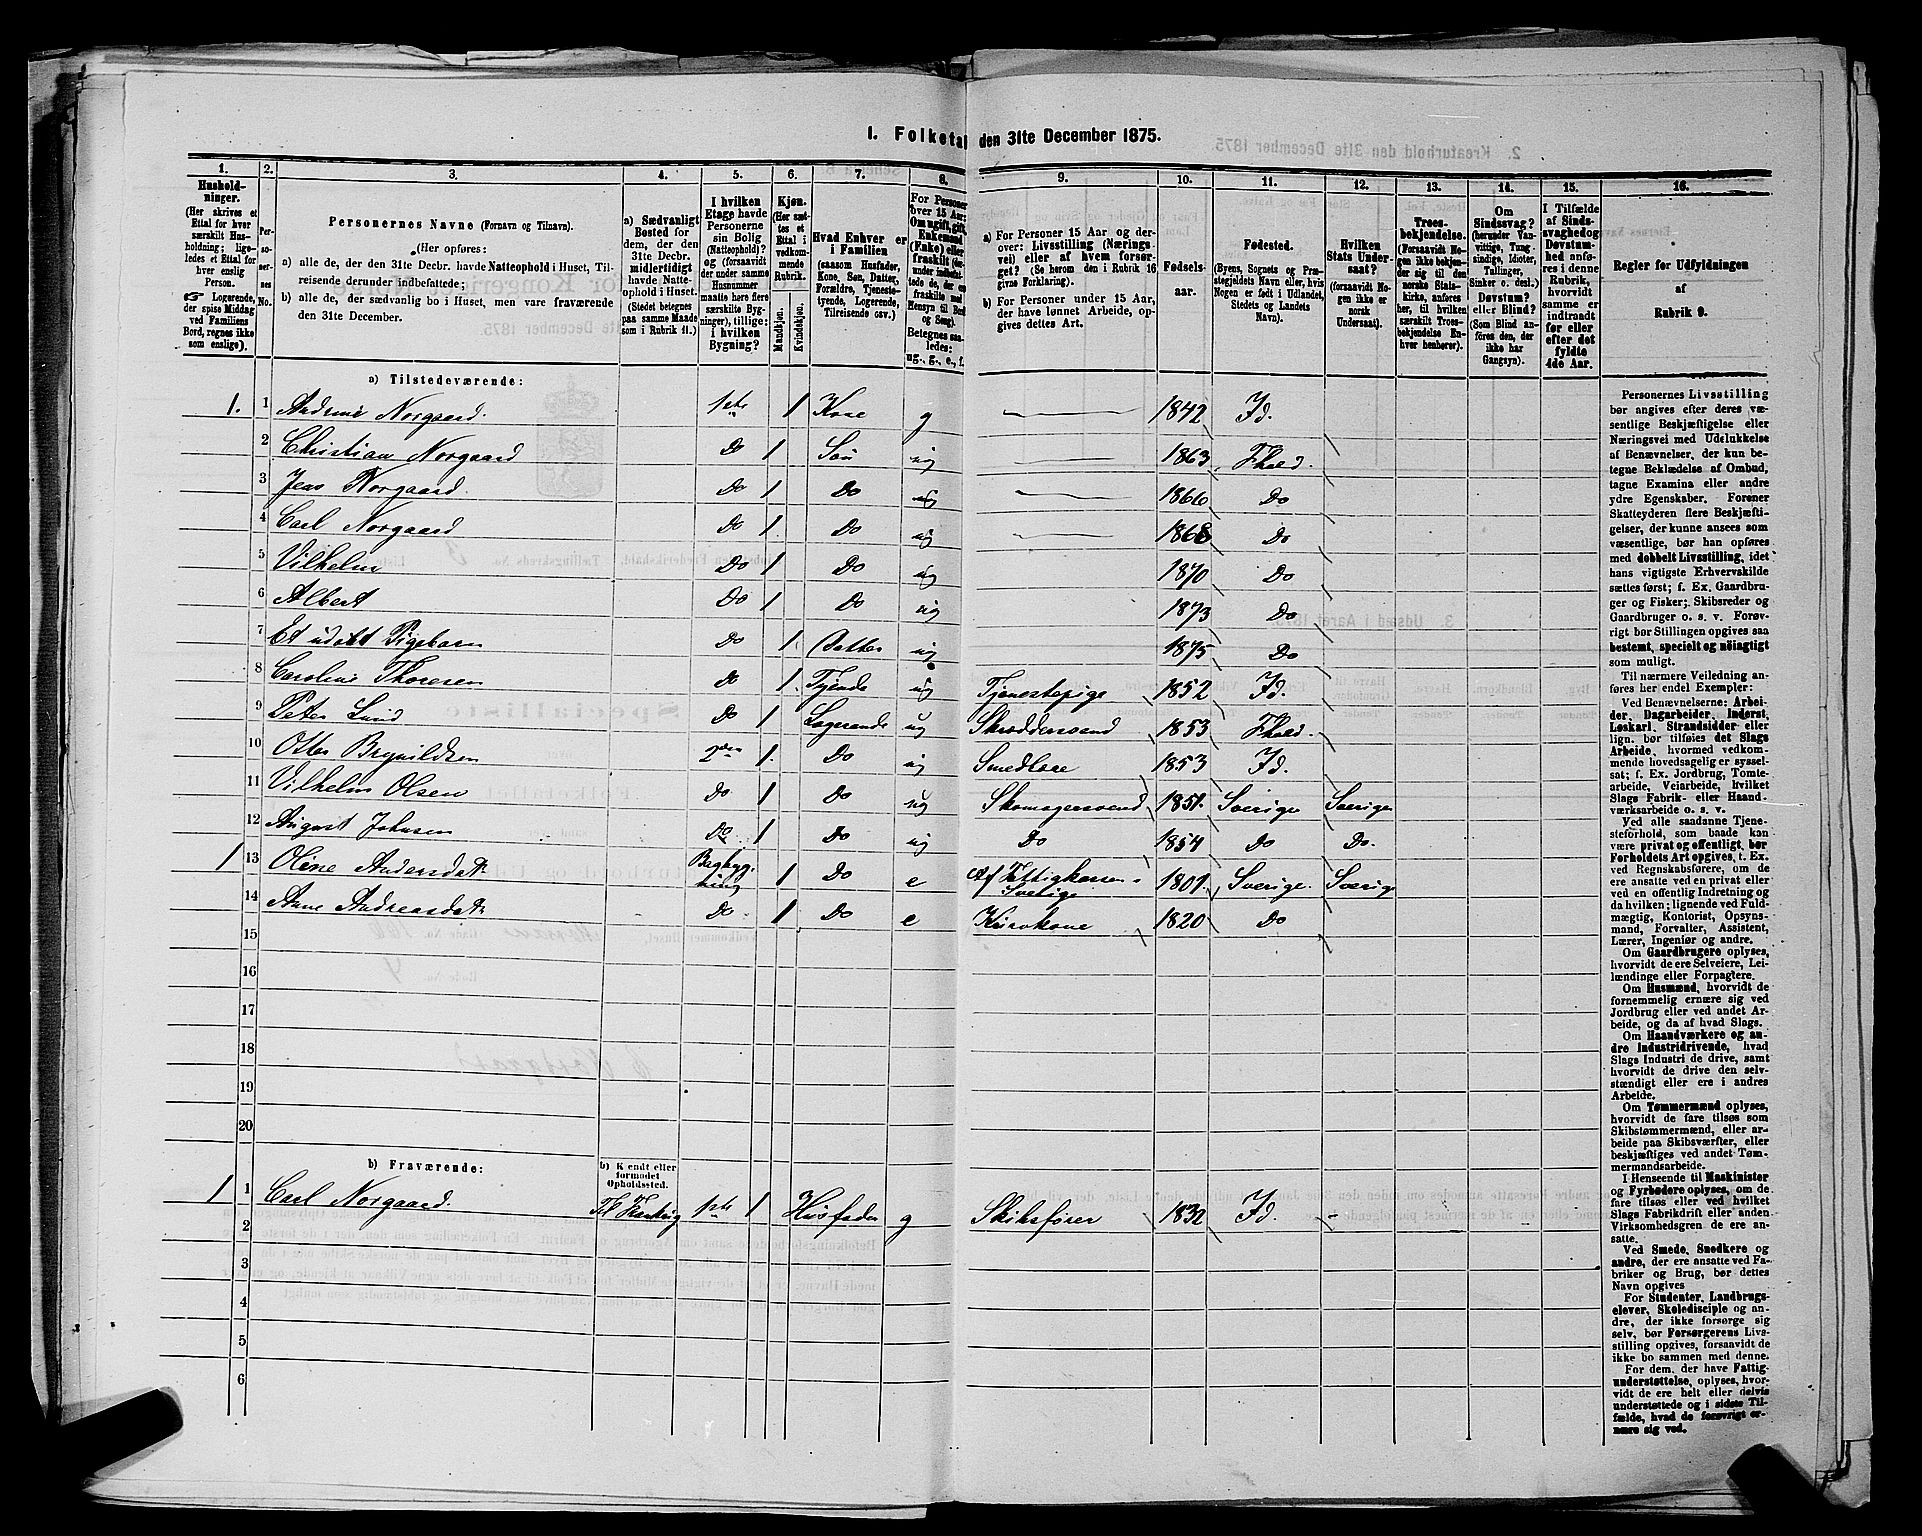 1. Folketal den 31te December 1875.
1. 2. 3. 4. 5. 6. 7. 8. 9. 10. 11. 12. 13. 14. 15. 16.
Hushold-
ninger.
(Her skrives et
Ettal for hver
særskilt Hus-
holdning; lige-
ledes et Ettal for
hver enslig
Person.
☞ Logerende,
der spise Middag
ved Familiens
Bord, regnes ikke
som enslige).
Per-
so-
ner-
nes
No.
Personernes Navne (Fornavn og Tilnavn).
(Her opføres:
a) alle de, der den 31te Decbr. havde Natteophold i Huset, Til-
reisende derunder indbefattede;
b) alle de, der sædvanlig bo i Huset, men vare fraværende
den 31te December.
a) Sædvanligt
Bosted for
dem, der den
31te Decbr.
midlertidigt
havde Natte-
ophold i Huset.
(Stedet betegnes
paa samme Maade
som i Rubrik 11.)
I hvilken
Etage havde
Personerne
sin Bolig
(Natteophold)?
og (forsaavidt
der under samme
Husnummer
maatte høre flere
særskilte Byg-
ninger), tillige:
i hvilken
Bygning?
Kjøn.
(Her sæt-
tes et
Ettal i
vedkom-
mende
Rubrik.
Mandkjøn.
Kvindekjøn.
Hvad Enhver er
i Familien
(saasom Husfader,
Kone, Søn, Datter,
Forældre, Tjeneste-
tyende, Logerende,
Tilreisende osv.)
For Personer
over 15 Aar:
Om ugift, gift,
Enkemand
(Enke) eller
fraskilt
Betegnes saa-
ledes:
ug., g., e., f.
a) For Personer 15 Aar og der-
over: Livsstilling (Nærings-
vei) eller af hvem forsør-
get? (Se herom den i Rubrik 16
givne Forklaring).
b) For Personer under 15 Aar,
der have lønnet Arbeide, op-
gives dettes Art.
Fødsels-
aar.
Fødested.
(Byens, Sognets og Præ-
stegjeldets Navn eller, hvis
Nogen er født i Udlandet,
Stedets og Landets
Navn).
Hvilken
Stats Under-
saat?
(forsaavidt No-
gen ikke er
norsk
Undersaat).
Troes-
bekjendelse.
(Forsaavidt No-
gen ikke bekjen-
der sig til den
norske Stats-
kirke, anføres
her, til hvilken
særskilt Troes-
bekjendelse En-
hver henhører).
Om
Sindssvag?
(herunder Van-
vittige, Tung-
sindige, Idioter,
Tullinger,
Sinker o. desl.)
Døvstum?
eller Blind?
(Som Blind an-
føres den, der
ikke har
Gangsyn).
I Tilfælde
af Sinds-
svaghed og
Døvstum-
hed anføres
i denne
Rubrik,
hvorvidt
samme er
indtraadt
før eller
efter det
fyldte
4de Aar.
Regler for Udfyldningen
af
Rubrik 9.
a) Tilstedeværende:
1. 1 Andrine Norgaard. 1ste 1 Kone g 1842 Id.
2 Christian Norgaard Do 1 Søn ug 1863 Fhald.
3 Jens Norgaard. Do 1 Do ug 1866 Do
4 Carl Norgaard Do 1 Do ug 1868 Do
5 Vilhelm Do 1 Do ug 1870 Do
6 Albert Do 1 Do ug 1873 Do
7 Et udøbt Pigebarn Do 1 Datter ug 1875 Do
8 Caroline Thoresen Do 1 Tjende ug Tjenestepige 1852 Id.
9 Peter Lund Do 1 Logerende ug Skræddersvend 1853 Fhald.
10 Otter Brynildsen 2den 1 Do ug Smedlære 1853 Id.
11 Vilhelm Olsen Do 1 Do ug Skomagersvend 1851 Sverige Sverige
12 August Johnsen Do 1 Do ug Do 1854 Do Do.
1 13 Oline Andersdatr Bagbyg-
ning 1 Do e Af Fattigkassen i
Sverige 1801 Sverige. Sverige
14 Anne Andreasdatr Do 1 Do e Kurvkone 1820 Do
15
16
17
18
19
20
b) Fraværende: b) Kjendt eller
formodet
Opholdssted.
1 1 Carl Norgaard. 1ste 1 Husfader g Skibsfører 1832 Id.
2
3
4
5
6
Personernes Livsstilling
bør angives efter deres væ-
sentlige Beskjæftigelse eller
Næringsvei med Udelukkelse
af Benævnelser, der kun be-
tegne Beklædelse af Ombud,
tagne Examina eller andre
ydre Egenskaber. Forener
Skatteyderen flere Beskjæfti-
gelser, der kunne ansees som
væsentlige, bør han opføres
med dobbelt Livsstilling, idet
hans vigtigste Erhvervskilde
sættes først; f. Ex. Gaardbru-
ger og Fisker; Skibsreder og
Gaardbruger o. s. v. Forøv-
rigt bør Stillingen opgives saa
bestemt, specielt og nöiagtigt
som muligt.
Til nærmere Veiledning an-
føres her endel Exempler:
Ved Benævnelserne: Arbei-
der, Dagarbeider, Inderst,
Løskarl, Strandsidder eller
lign. bør tilføies det Slags
Arbeide, hvormed vedkom-
mende hovedsagelig er syssel-
sat; f. Ex. Jordbrug, Tomte-
arbeide, Veiarbeide, hvilket
Slags Fabrik- eller Haand-
værksarbeide o. s. v.
Ved alle saadanne Tjene-
steforhold, som baade kan
være privat og offentligt, bør
Forholdets Art opgives, t. Ex.
ved Regnskabsførere, om de
ere ansatte ved en privat eller
ved en offentlig Indretning og
da hvilken; lignende ved Fuld-
mægtig, Kontorist, Opsyns-
mand, Forvalter, Assistent,
Lærer, Ingeniør og andre.
Om Gaardbrugere oplyses,
hvorvidt de ere Selveiere, Lei-
lændinge eller Forpagtere.
Om Husmænd, hvorvidt de
fornemmelig ernære sig ved
Jordbrug eller ved andet Ar-
beide, og da af hvad Slags.
Om Haandværkere og an-
dre Industridrivende, hvad
Slags Industri de drive, samt
hvorvidt de drive den selv-
stændigt eller ere i andres
Arbeide.
Om Tømmermænd oplyses,
hvorvidt de fare tilsøs som
Skibstømmermænd, eller ar-
beide paa Skibsværfter, eller
beskjæftiges ved andet Tøm-
mermandsarbeide.
I Henseende til Maskinister
og Fyrbødere oplyses, om de
fare tilsøs eller ved hvilket
Slags Fabrikdrift eller anden
Virksomhedsgren de ere an-
satte.
Ved Smede, Snedkere og
andre, der ere ansatte ved Fa-
briker og Brug, bør dettes
Navn opgives
For Studenter, Landbrugs-
elever, Skoledisciple og an-
dre, der ikke forsørge sig
selv, bør Forsørgerens Livs-
stilling opgives, forsaavidt de
ikke bo sammen med denne.
For dem, der have Fattig-
understøttelse, oplyses, hvor-
vidt de ere helt eller delvis
understøttede og i sidste Til-
fælde, hvad de forøvrigt er-
nære sig ved.